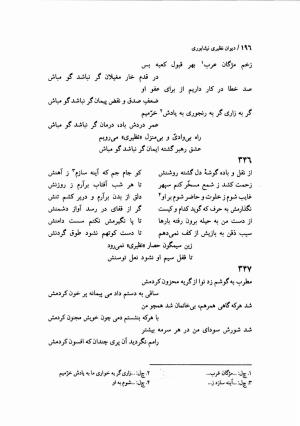 ۱۹۶ / دیوان نظیری نیشابوری
زخم مژگان عرب۱ بهر قبول کعبه بس
در قدم خار مغیلان گر نباشد گو مباش
صد خطا در کار داریم از برای عفو او
ضعف صدق و نقض پیمان گر نباشد گو مباش
گر به زاری گر به رنجوری به یادش۲ خرّمیم
عمر دردش باد، درمان گر نباشد گو مباش
راه بی‌وادیّ و بی‌منزل «نظیری» می‌رویم
عشق رهبر گشته ایمان گر نباشد گو مباش
۳۳۶
از نقل و باده گوشهٔ دل گشته روشنش
کو جام جم که آینه سازم۳ ز آهنش
زحمت کشد ز شمع مسخّر کنم سپهر
تا هر شب آفتاب برآرم ز روزنش
غایب شوم ز خلوت و حاضر شوم برو۴
دلق از بدن برآرم و دربر کشم تنش
نگذارمش به حرف که گوید کدام و کیست
گر از قفای در رسد آواز دشمنش
از دست من به حیله برون رفته بارها
تا پا نگیرمش نکنم سست دامنش
سیب ذقن به بازیش از کف نمی‌دهم
تا دست کوتهم نشود طوق گردنش
زین سیمگون حصار «نظیری» نمی‌رود
تا قفل سیم او نشود نعل توسنش
۳۳۷
مطرب به گوشم زد نوا از گریه محزون کردمش
ساقی به دستم داد می پیمانه پر خون کردمش
شد هرکه گاهی همرهم، بی‌خانمان شد همچو من
با هرکه بنشستم دمی چون خویش مجنون کردمش
شد شورش سودای من در هر سرمه بیشتر
رامم نگردید آن پری چندان که افسون کردمش
۱. ج‌ل: ...مژگان غرب...
۲. ج‌ل: ...زاری گر به خواری ما به یادش خرّمیم
۳. ج‌ل: ...آینه سازد ز...
۴. ج‌ل: ...شوم به او